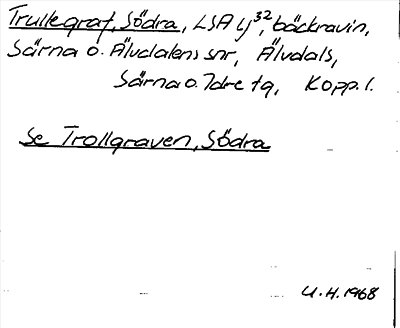 Trullegraf, Södra, LSA y³², bäckravin,
Särna o. Älvdalens snr, Älvdals,
Särna o. Idre tg, Kopp. l.
Se Trollgraven, Södra
U. H. 1968